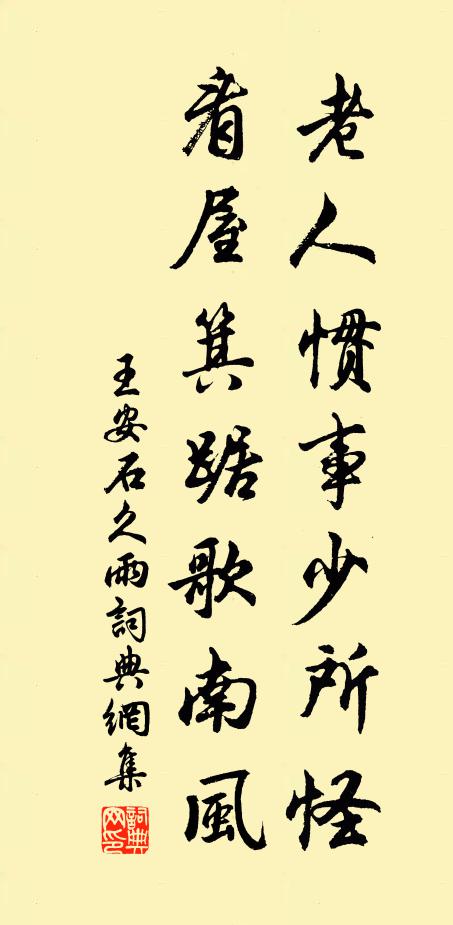 老人慣事少所怪
看屋箕踞歌南風
王安石久雨詞典網集
詞典網印